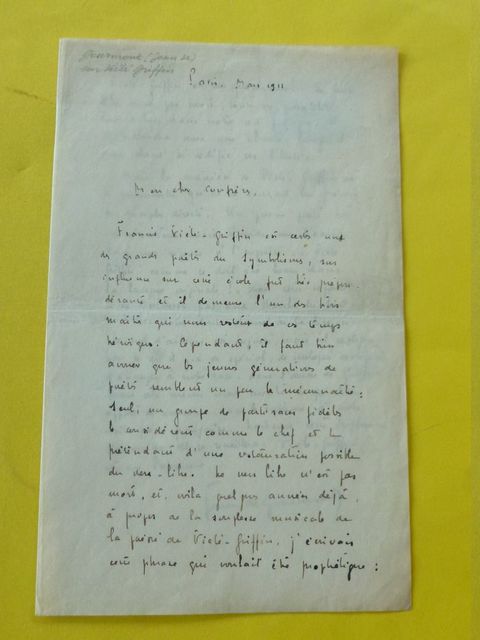 Gourmont (Jean de)
sur Vielé Griffin
Paris, Mars 1911
Mon cher confrère,
Francis Vielé-Griffin est certes un
des grands poëtes du Symbolisme, son
influence sur cette école fut très prépon-
dérante et il demeure l'un des
maîtres qui nous restent de ces temps
héroïques. Cependant, il faut bien
avouer que les jeunes générations de
poëtes semblent un peu le méconnaître :
seul, un groupe de partisans fidèles
le considèrent comme le chef et le
prétendant d'une restauration possible
du vers-libre. Le vers libre n'est pas
mort, et, voilà quelques années déjà,
à propos de la souplesse musicale de
la poésie de Vielé-Griffin, j'écrivais
cette phrase qui voulait être prophétique :